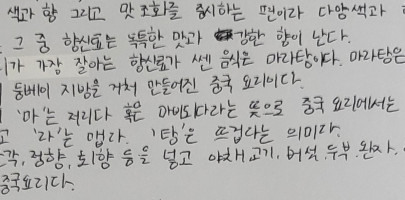 색과 향 그리고 맛 조화를 중시하는 편이라 다양색과
그 중 향신료는 독특한 맛과 강한 향이 난다.
가 가장 잘아는 향신료가 쎈 음식은 마라탕이다. 마라탕은
둥베이 지방을 거쳐 만들어진 중국 요리이다.
'마'는 저리다 혹은 마비되다라는 뜻으로 중국 요리에서는
고 '라'는 맵다. '탕'은 뜨겁다는 의미다.
각, 정향, 회향 등을 넣고 야채, 고기, 버섯, 두부, 완자,
중국요리다.